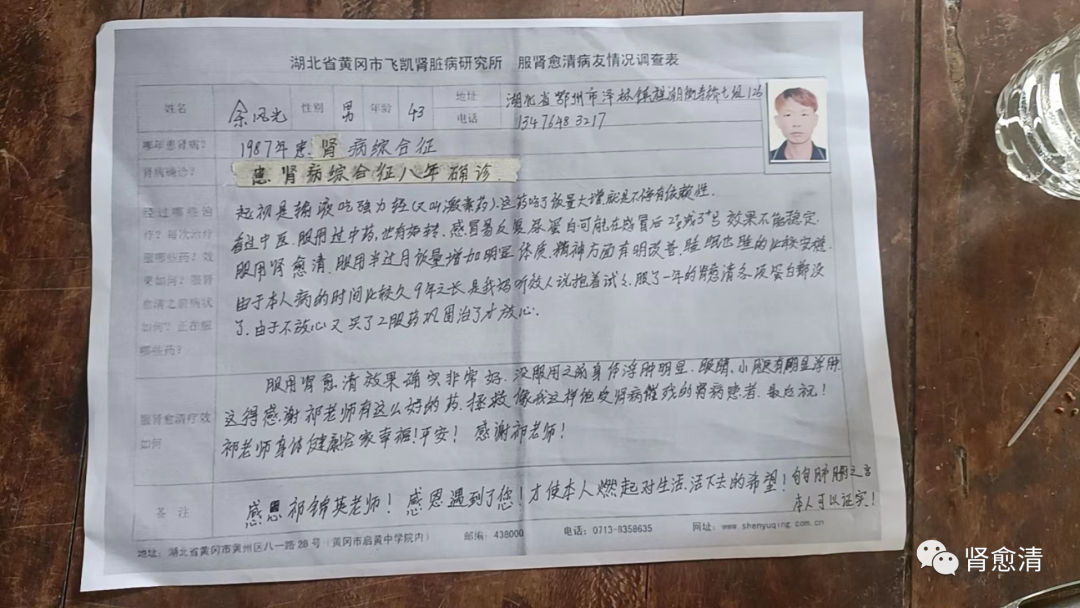 湖北省黄冈市飞凯肾脏病研究所 服肾愈清病友情况调查表
姓名 余风光 性别 男 年龄 43 地址 湖北省鄂州市泽林镇 七组12号
电话 1347648 3217
哪年患肾病? 1987年患肾病综合征
肾病确诊? 患肾病综合征八年确诊.
经过哪些治疗?每次治疗服哪些药?效果如何?服肾愈清之前病状如何?正在服哪些药?
起初是输液吃强力经(又叫激素药).这药吃了饭量大增就是不停有依赖性.
看过中医.服用过中药,也有好转.感冒易反复.尿蛋白可能在感冒后2号或3号 效果不能稳定.
服用肾愈清.服用半过月饭量增加明显 体质.精神方面有明改善.睡眠也睡的比较安稳.
由于本人病的时间比较久9年之长.是我妈听放人说抱着试之.服了一年的肾愈清各项蛋白都没
了.由于不放心又买了2服药巩固治了才放心.
服肾愈清疗效如何
服用肾愈清效果确实非常好.没服用之前身体浮肿明显.眼睛、小腿有明显浮肿.
这得感谢祁老师有这么好的药.拯救像我这样他皮肾病催残的肾病患者.最后祝!
祁老师身体健康合家幸福!平安! 感谢祁老师!
备注 感恩祁锦英老师! 感恩遇到了您! 才使本人燃起对生活.活下去的希望! 句句肺腑之言
本人可以证实!
地址:湖北省黄冈市黄州区八一路28号(黄冈市启黄中学院内) 邮编:438000 电话:0713-8358635 网址:www.shenyuqing.com.cn
肾愈清